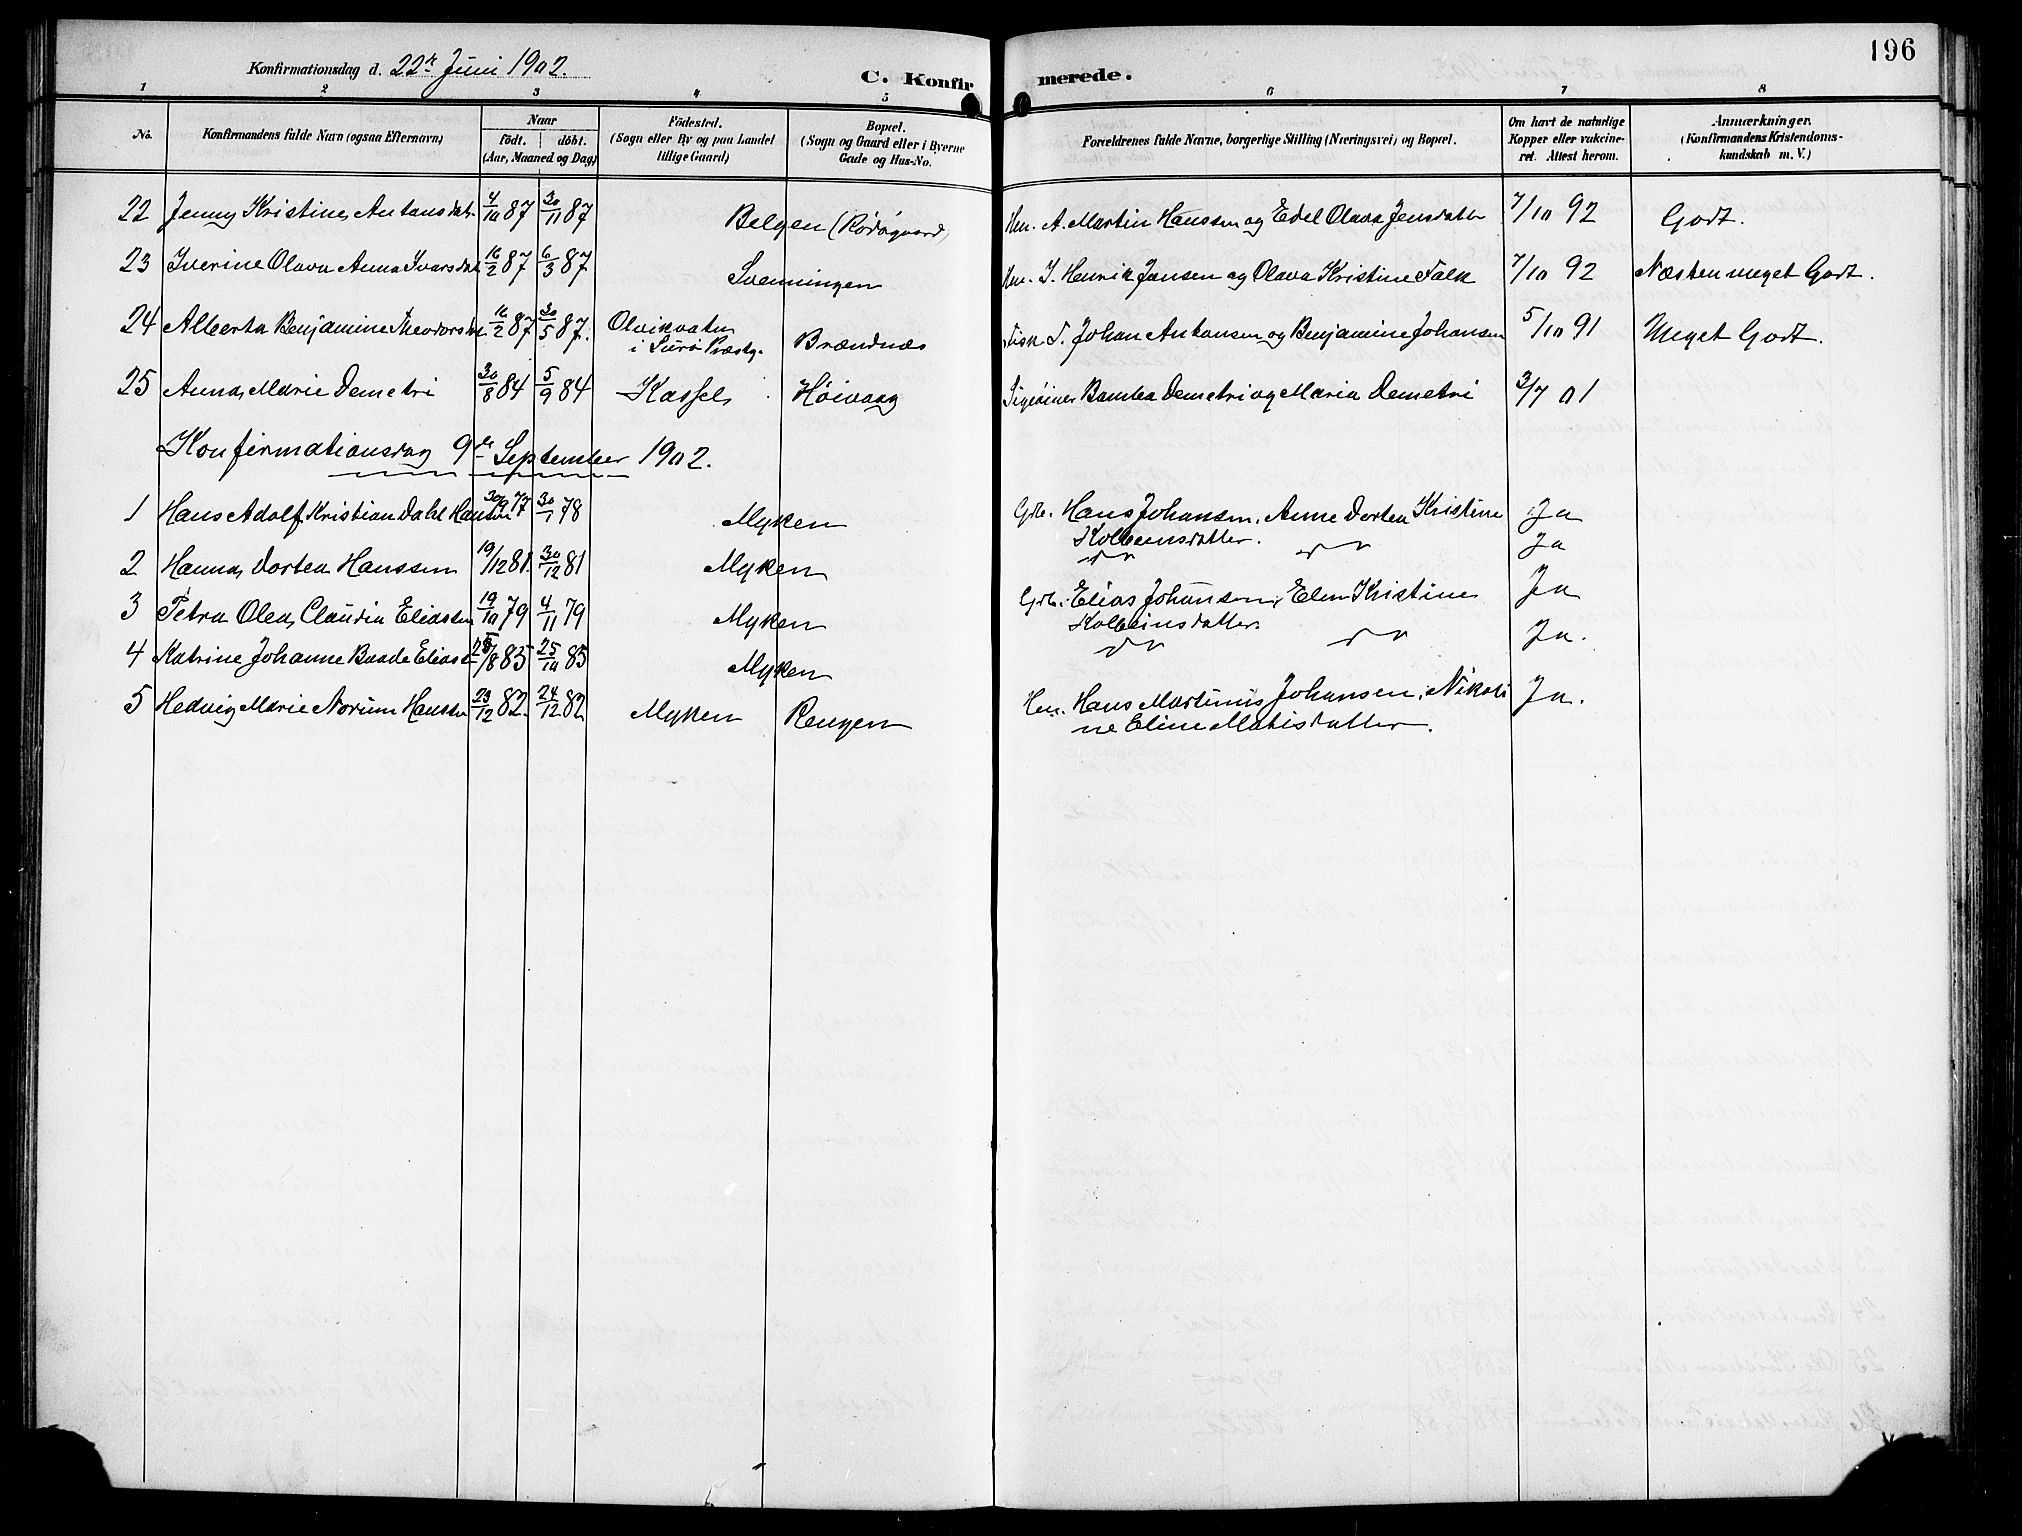 196
Konfirmationsdag d. 22de Juni 1902.
C. Konfirmerede.
1 2 3 4 5 6 7 8
No. | Konfirmandens fulde Navn (ogsaa Efternavn) | Naar født. | døbt. (Aar, Maaned og Dag) | Fødested. (Sogn eller By og paa Landet tillige Gaard) | Bopæl. (Sogn og Gaard eller i Byerne Gade og Hus-No. | Forældrenes fulde Navne, borgerlige Stilling (Næringsvei) og Bopæl. | Om havt de naturlige Kopper eller vakcineret. Attest herom. | Anmærkninger. (Konfirmandens Kristendomskundskab m. V.)
22 Jenny Kristine Antonsdatr. 4/10 87 30/11 87 Belgen (Rødøgaard) Hm. A. Martin Hanssen og Edel Olava Jensdatter 7/10 92 Godt.
23 Iverine Olava Anna Ivarsdatr 16/2 87 6/3 87 Svenningen Hm. I. Henrik Jansen og Olava Kristine Falk 7/10 92 Næsten meget Godt.
24 Alberta Benjamine Theodorsdat 16/2 87 30/5 87. Olvikvatn
i Lurø Præstg. Brændnæs Fisk. T. Johan Antonsen og Benjamine Johansen 5/10 91 Meget Godt.
25 Anna Marie Demetri 30/8 84 5/9 84 Kassel Høivaag Sigøiner Bamba Demetri og Maria Demetri 3/7 01
Konfirmationsdag 9de September 1902.
1 Hans Adolf Kristian Dahl Hansen 30/9 77 30/1 78 Myken Grb. Hans Johansen. Anne Dortea Kristine Ja
Kolbeinsdatter.
2 Hanna Dortea Hanssen 19/12 81. 30/12 81 Myken do do Ja
3 Petra Olea Claudia Eliassen 19/10 79 4/11 79 Myken Grb. Elias Johansen, Elen Kristine Ja
Kolbeinsdatter.
4 Katrine Johanne Baade Eliass 25/8 85 25/10 85 Myken do do Ja.
5 Hedvig Marie Norum Hanssen 23/12 82. 24/12 82 Myken Rengen Hm. Hans Martinus Johansen, Nikoli Ja.
ne Eline Matisdatter.